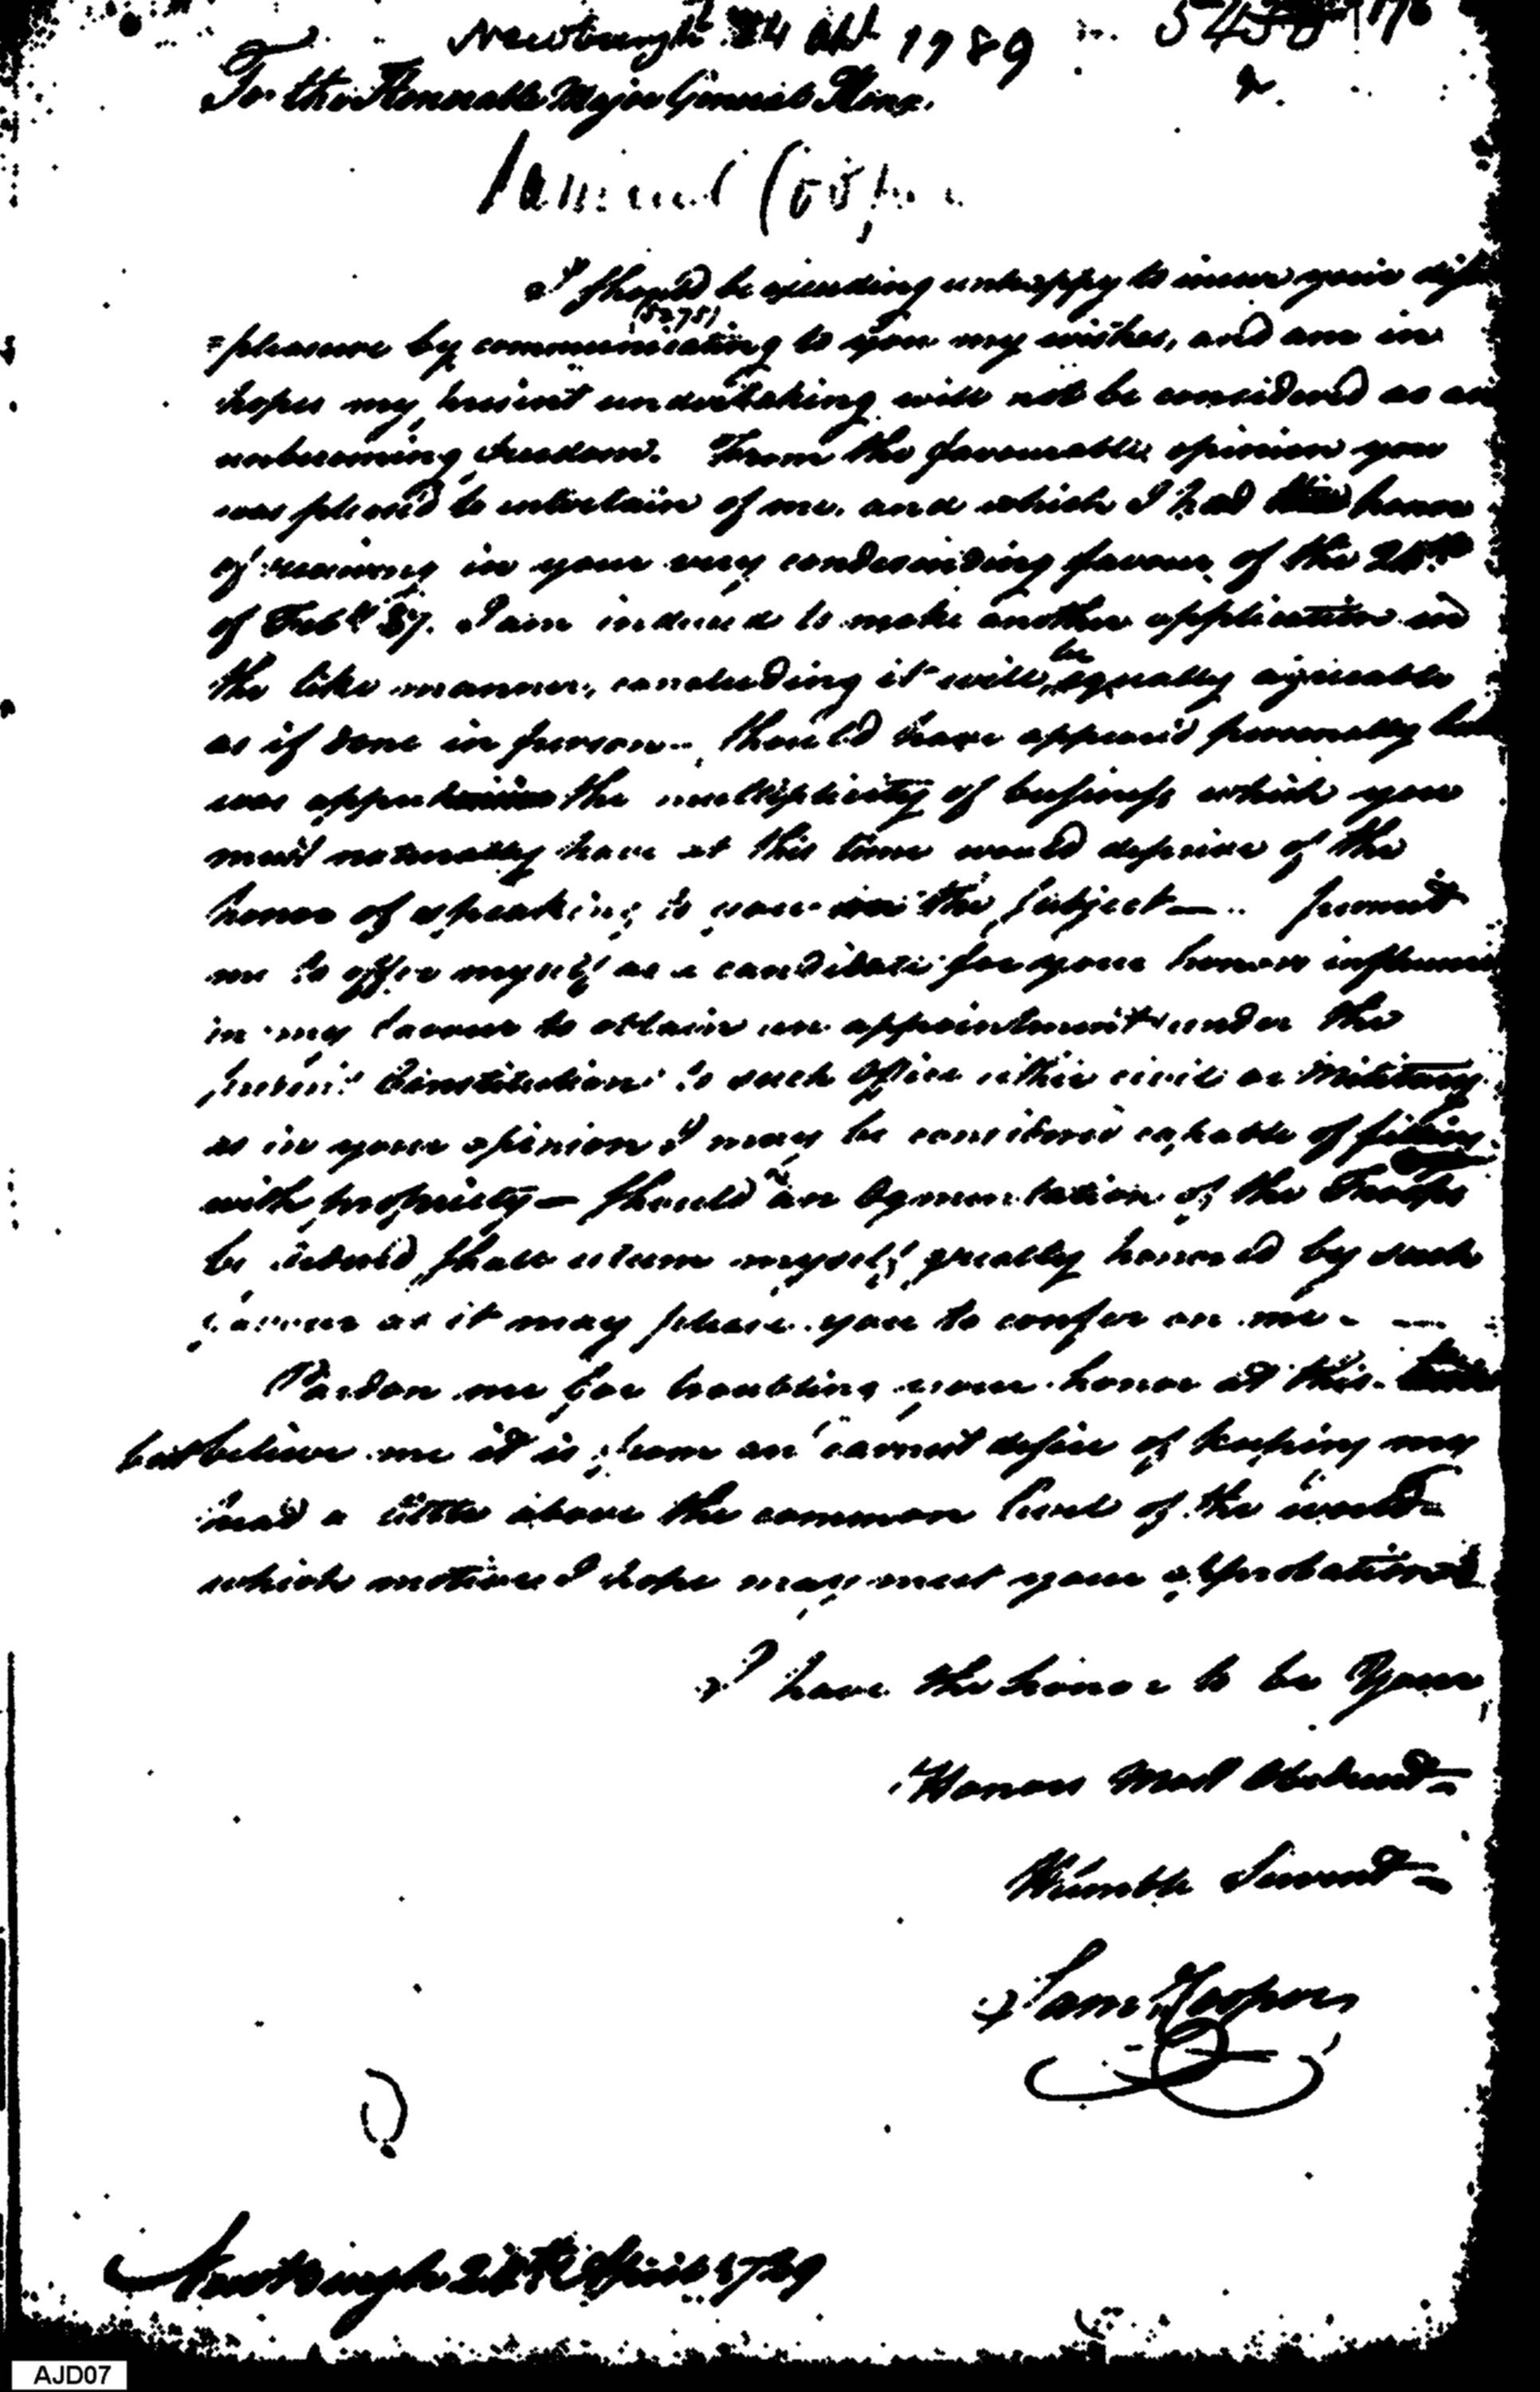 Newburgh 24 Apl 1789
To the Honorable Major General Knox.
Samuel Cooper
I should be exceeding unhappy to incur your dis
(5275)
=pleasure by communicating to you my wishes, and am in
hopes my present undertaking will not be considered as an
unbecoming freedom. From the favourable opinion you
was pleased to entertain of me, and which I had the honor
of receiving in your very condescending favour of the
of Feby 87. I am induced to make another application in
the like manner, concluding it will be equally agreeable
as if done in person. Should have appear'd personally but
was the multiplicity of business which you
must naturally have at this time would deprive of the
honor of speaking to you on the subject — permit
me to offer myself as a candidate for your honors influence
in my favour to obtain an appointment under the
present Constitution to such Office either civil or Military
as in your opinion I may be considered capable of filling
with propriety — should an Agmentation of the Troops
be shall esteem myself greatly honored by such
favour as it may please you to confer on me —
Pardon me for troubling your honor at this time
but believe me it is from an earnest desire of keeping my
head a little above the common level of the world
which motive I hope may meet your approbation
I have the honor to be Your
Honors Most Obedient
Humble Servant
Sam. Cooper
Newburgh 24th April 1789
AJD07